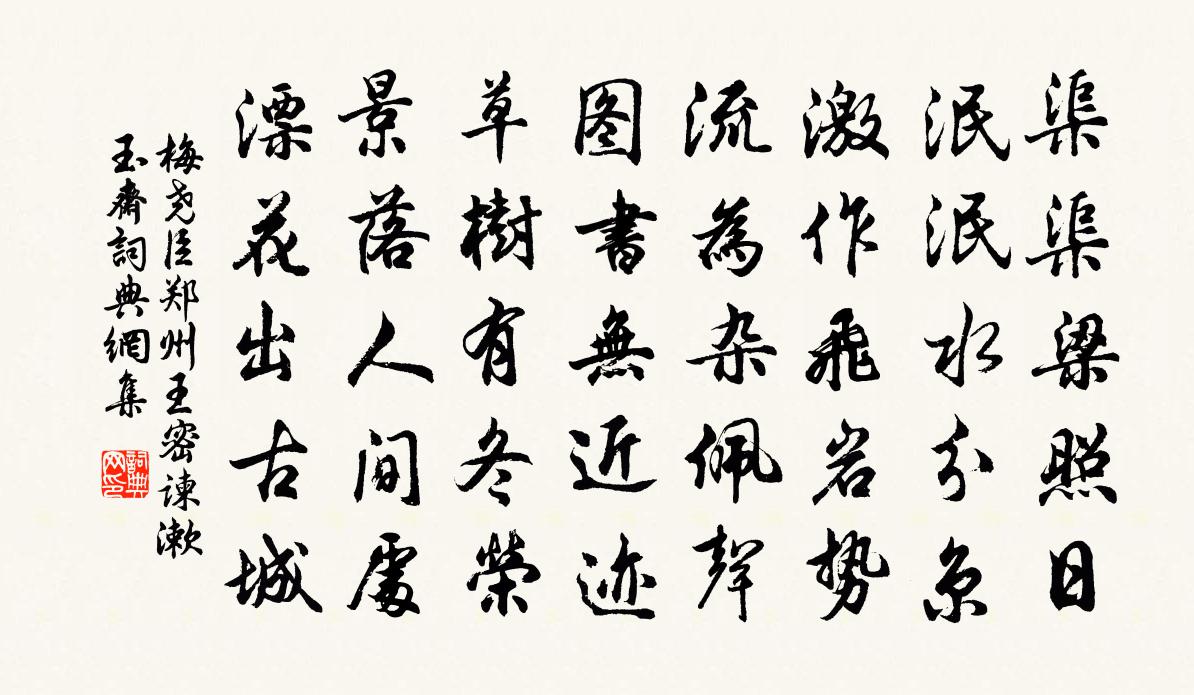 渠渠梁照日
泯泯水分京
激作飛岩势
流為杂佩聲
图書無近迹
草樹有冬榮
景落人间處
漂花出古城
梅尧臣郑州王密谏漱
玉齋詞典網集
詞典
网印